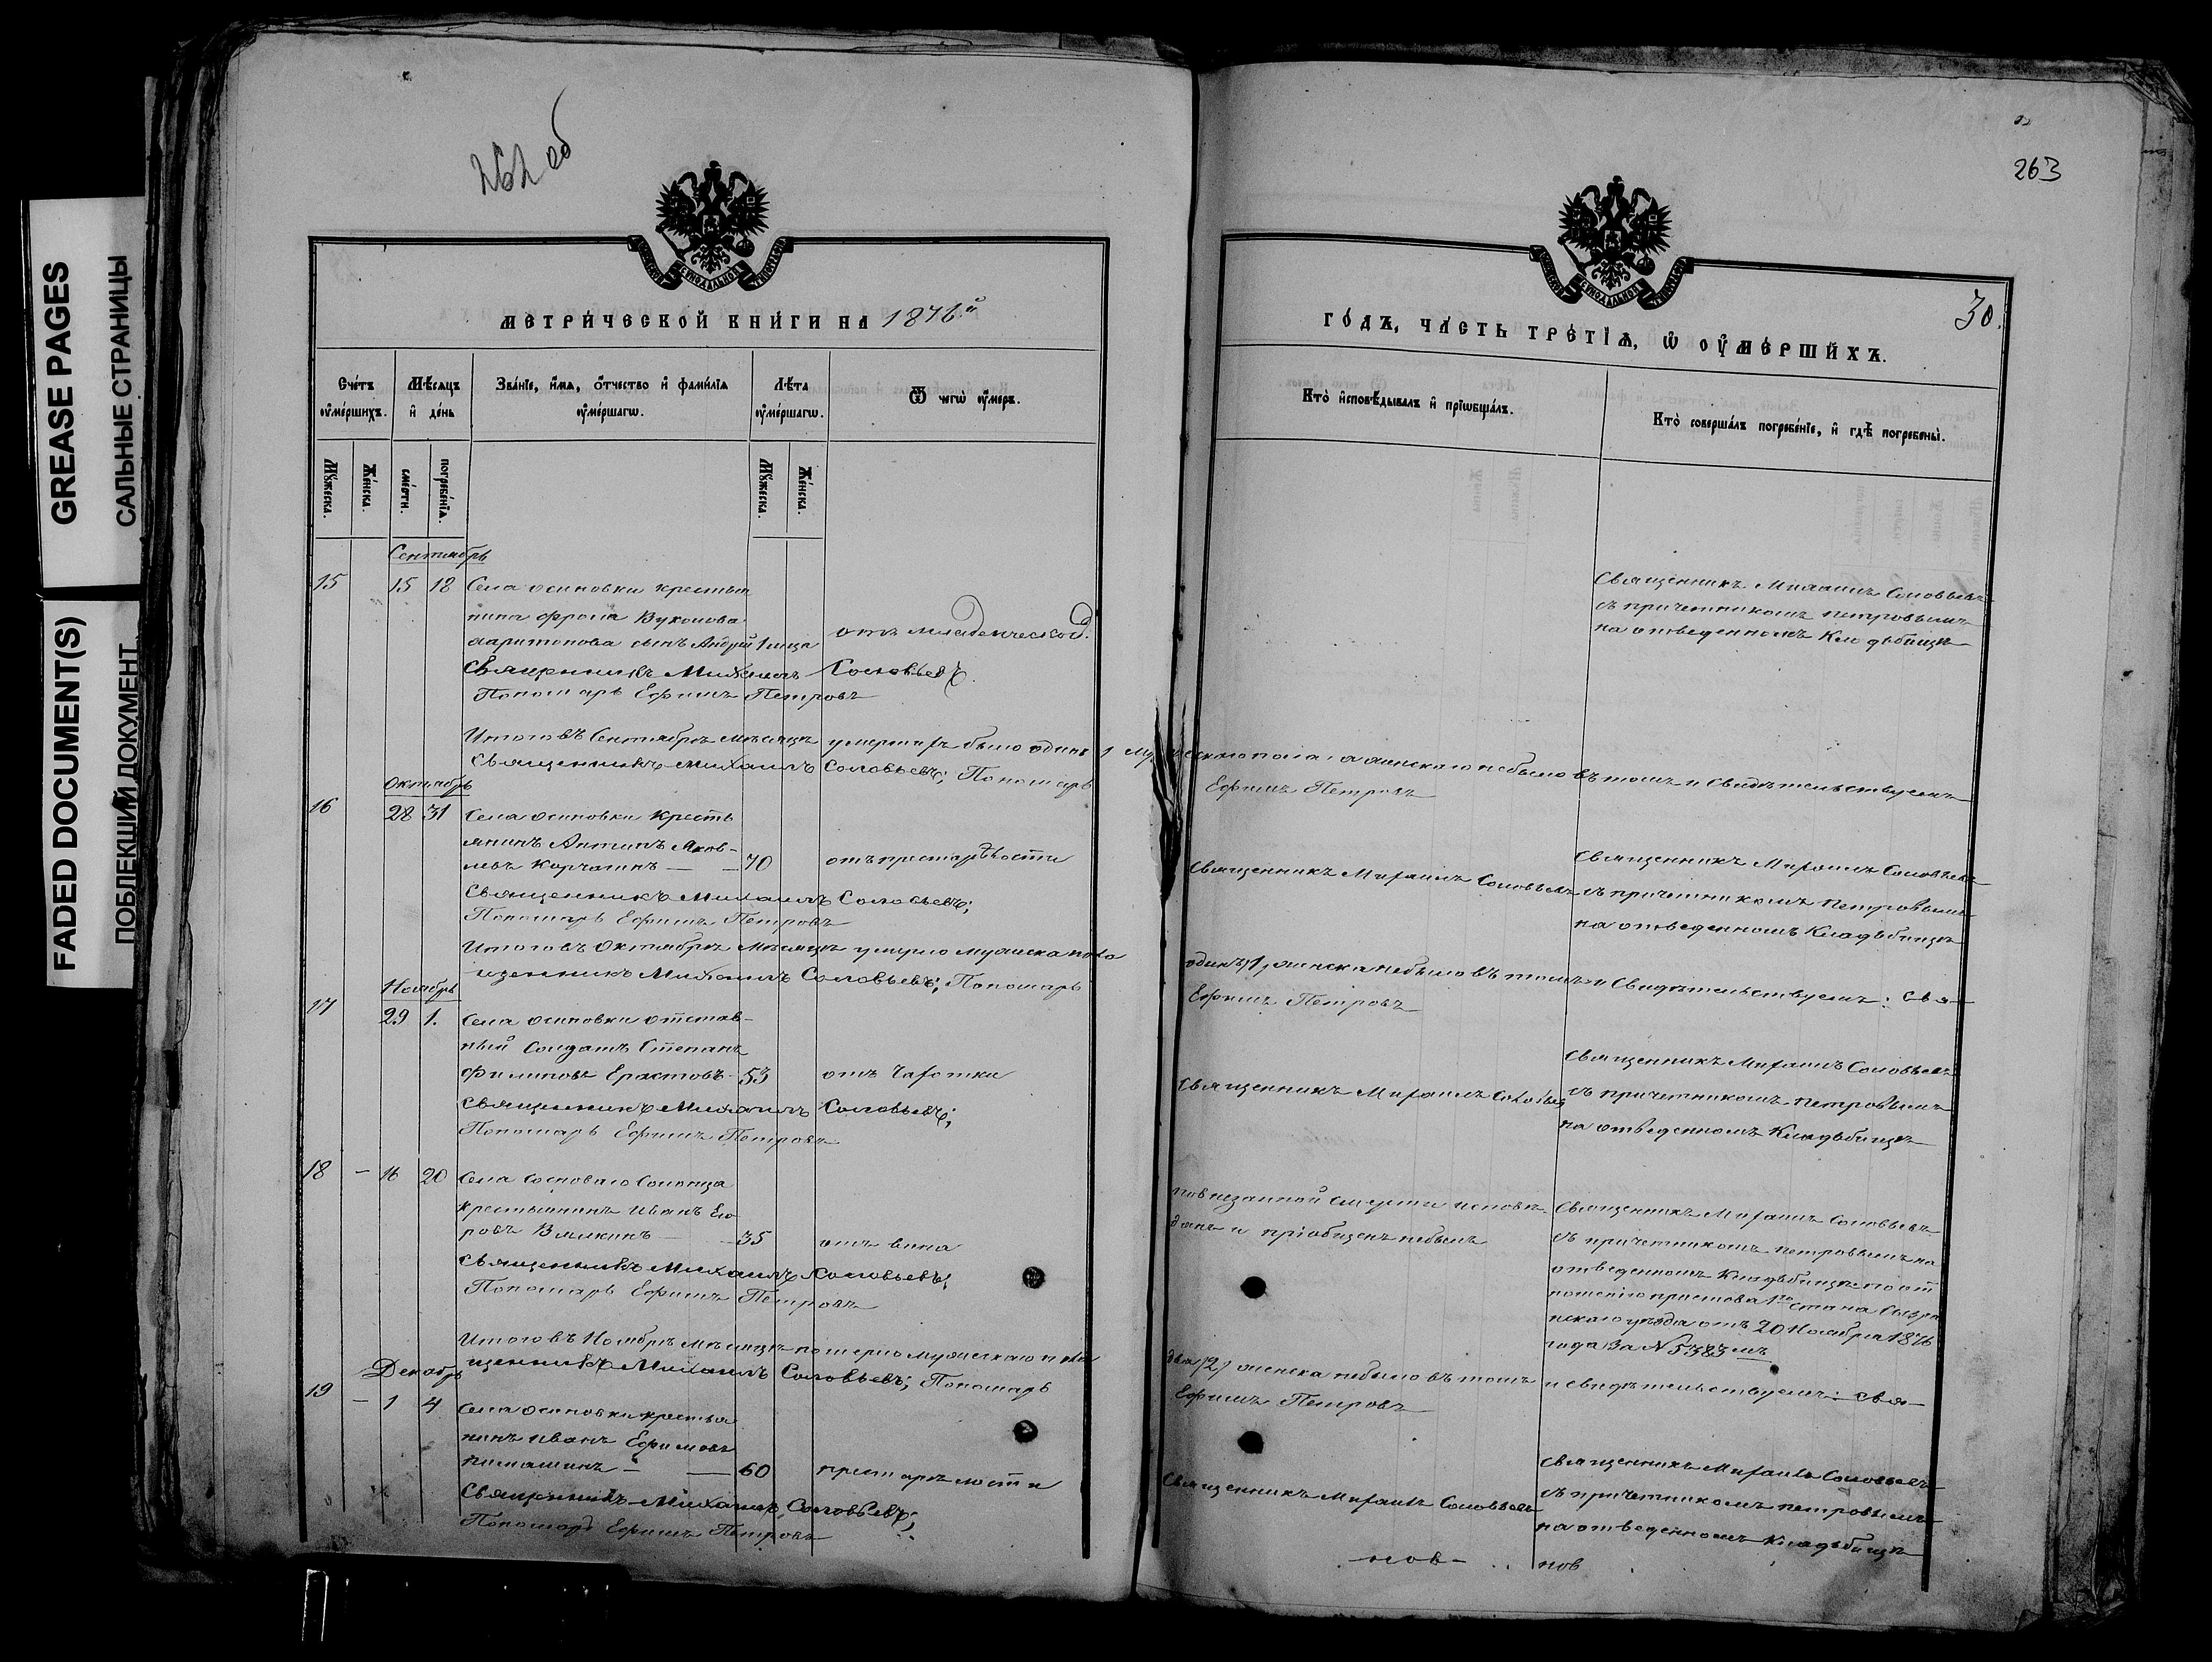 GREASE PAGES
САЛЬНЫЕ СТРАНИЦЫ
FADED DOCUMENT(S)
ПОБЛЕКШИЙ ДОКУМЕНТ
262 об
МЕТРИЧЕСКОЙ КНИГИ НА 1876й
Счетъ умершихъ.
Мѣсяцъ и день
Званіе, имя, отчество и фамилія умершагѡ.
Лѣта умершагѡ.
Ѿ чегѡ умеръ.
Мужеска.
Женска.
смерти.
погребенія.
Мужеска.
Женска.
Сентябрь
15 15 18 Села осиновки крестья
нина Фрола Вуколова
Харитонова сынъ Андрей 1 мца отъ младенческой.
Священникъ Михаилъ Соловьевъ.
Пономарь Ефимъ Петровъ
Итого въ Сентябрѣ мѣсяцѣ умершихъ было одинъ 1 му
Священникъ Михаилъ Соловьевъ; Пономарь
Октябрь
16 28 31 Села осиновки Кресть
янинъ Антипъ Яков-
левъ Корчагинъ — 70 отъ престарѣлости
Священникъ Михаилъ Соловьевъ;
Пономарь Ефимъ Петровъ
Итого въ Октябрѣ мѣсяцѣ умерло мужеска пола
щенникъ Михаилъ Соловьевъ; Пономарь
Ноябрь
17 29 1. Села осиновки отстав-
ный Солдатъ Степанъ
Филиповъ Ерастовъ 53 отъ Чахотки
Священникъ Михаилъ Соловьевъ;
Пономарь Ефимъ Петровъ
18 — 16 20 Села Сосноваго Солонца
крестьянинъ Иванъ Его
ровъ — 35 отъ вина
Священникъ Михаилъ Соловьевъ;
Пономарь Ефимъ Петровъ
Итого въ Ноябрѣ мѣсяцѣ померло мужескаго пола
щенникъ Михаилъ Соловьевъ; Пономарь
Декабрь
19 — 1 4 Села Осиновки крестья
нинъ Иванъ Ефимовъ
— 60 престарѣлости
Священникъ Михаилъ Соловьевъ;
Пономарь Ефимъ Петровъ
263
30.
ГОДЪ, ЧАСТЬ ТРЕТІЯ, Ѡ УМЕРШИХЪ.
Кто исповѣдывалъ и пріѡбщалъ.
Кто совершалъ погребеніе, и гдѣ погребены.
Священникъ Михаилъ Соловьевъ
съ причетникомъ Петровымъ
на отведенномъ Кладбищѣ
ескаго пола, а женскаго небыло въ томъ и Свидѣтельствуемъ
Ефимъ Петровъ
Священникъ Михаилъ Соловьевъ
Священникъ Михаилъ Соловьевъ
съ причетникомъ Петровымъ
на отведенномъ Кладьбищѣ
одинъ /1/ женска небыло въ томъ и Свидѣтельствуемъ: Свя-
Ефимъ Петровъ
Священникъ Михаилъ Соловьев
Священникъ Михаилъ Соловьевъ
съ причетникомъ Петровымъ
на отведенномъ Кладьбищѣ
по внезапной смерти исповѣ-
данъ и пріобщенъ небылъ
Священникъ Михаилъ Соловьевъ
съ причетникомъ Петровымъ на
отведенномъ Кладьбищѣ по от
ношенію пристава 1го стана Сызра
нскаго уѣзда отъ 20 Ноября 1876
года за № 5383мъ
два /2/ женска небыло въ томъ и свидѣтельствуемъ: Свя-
Ефимъ Петровъ
Священникъ Михаилъ Соловьевъ
Священникъ Михаилъ Соловьевъ
съ причетникомъ Петровымъ
на отведенномъ Кладьбищѣ
-нов-
нов